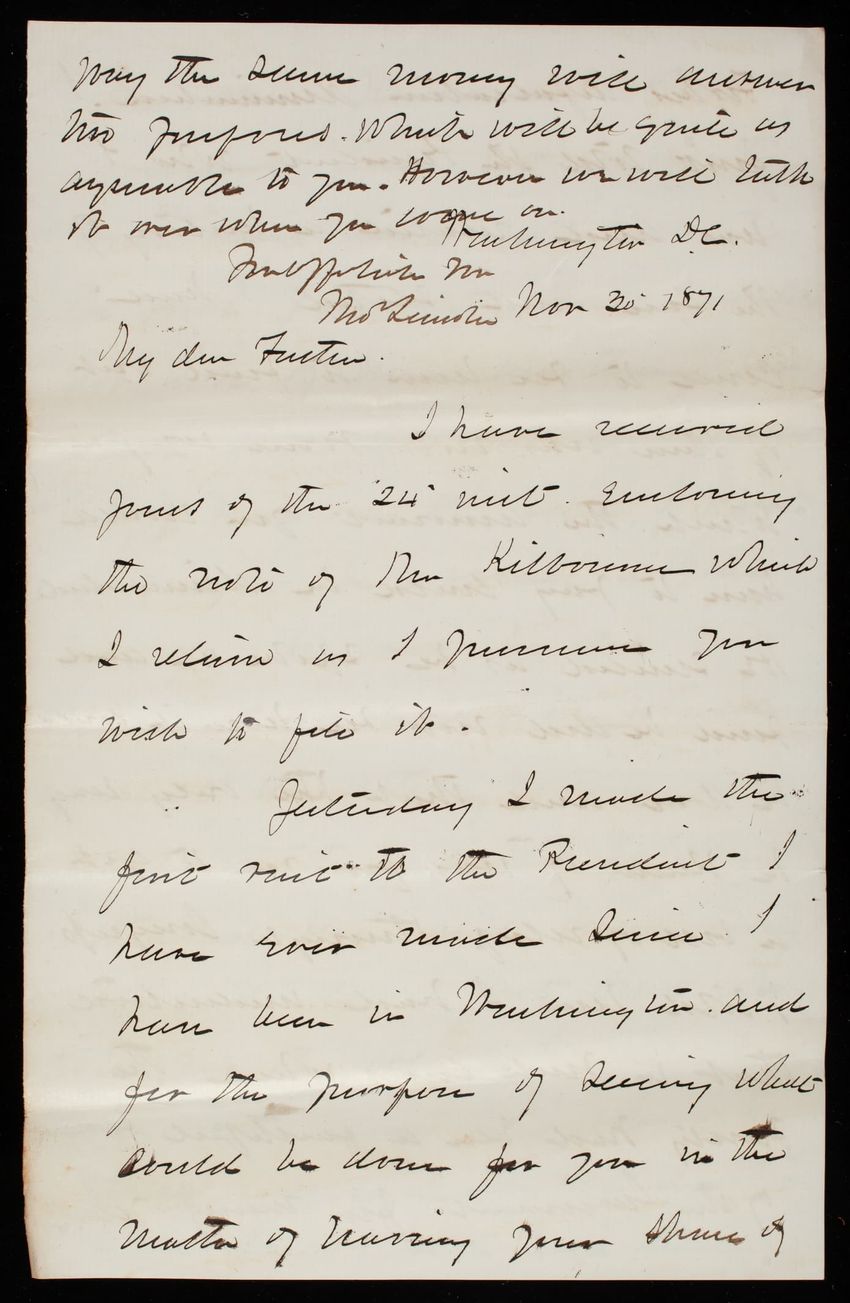 way the same money will answer
two purposes. Which will be quite as
agreeable to you. However we will talk
it over when you come on.
Washington D.C.
Nov 30 1871
My dear Foster.
I have received
yours of the 24 inst. Enclosing
the note of Mr Kilbourne which
I return as I presume you
wish to file it.
Yesterday I made the
first visit to the President I
have ever made since I
have been in Washington. and
for the purpose of seeing what
could be done for you in the
matter of having your share of